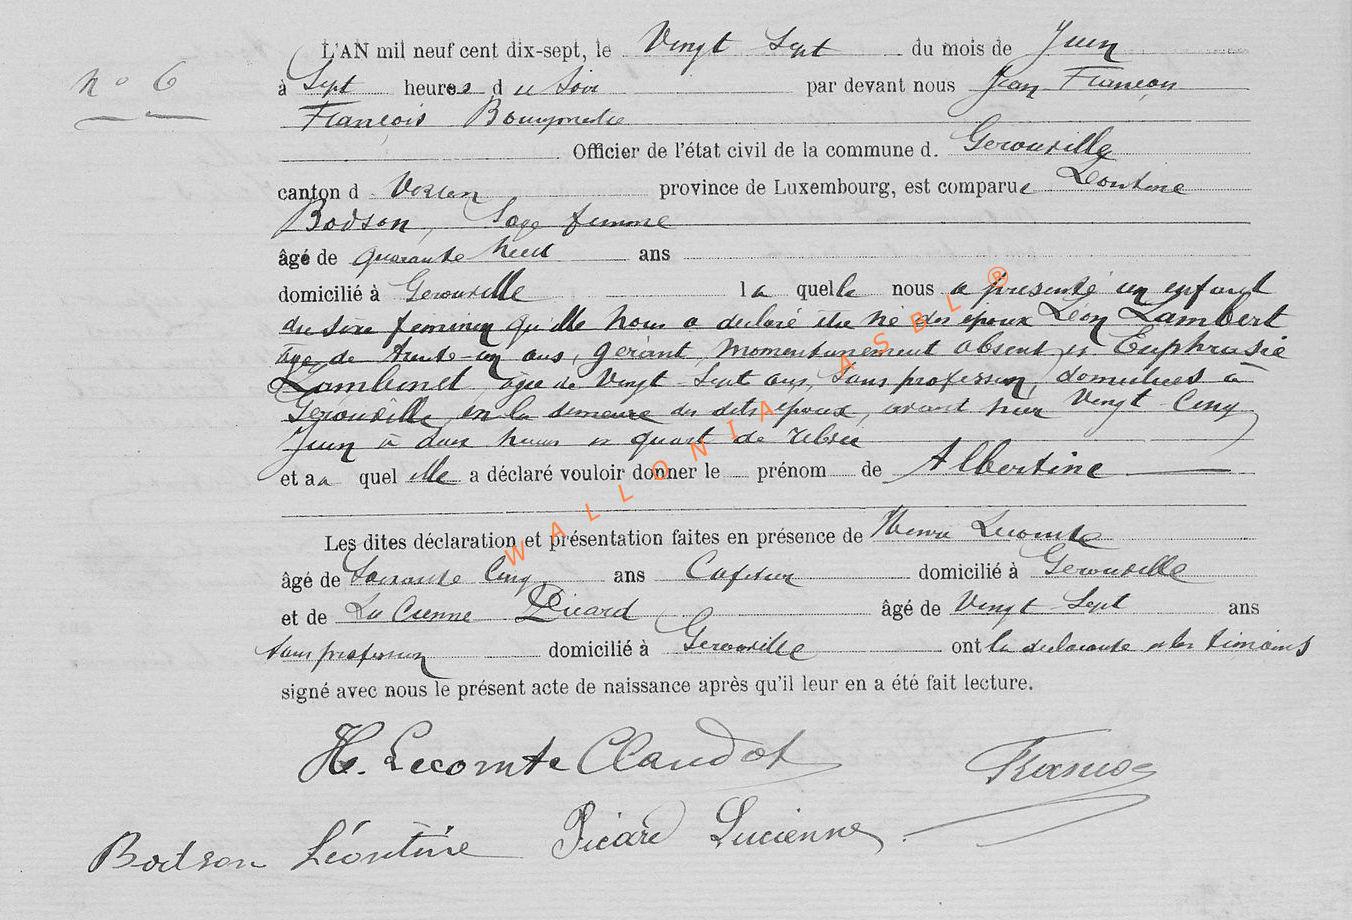 n° 6
L'AN mil neuf cent dix-sept, le Vingt Sept du mois de Juin
à Sept heures du Soir par devant nous Jean François
François
Officier de l'état civil de la commune d. Gerouville
canton d Virton province de Luxembourg, est comparue Léontine
Bodson, Sage femme
âgé de quarante neuf ans
domicilié à Gerouville la quelle nous a présenté un enfant
du sexe feminin qu'elle nous a declaré être né des epoux Léon Lambert
âgé de trente-un ans, gérant, momentanement absent et Euphrasie
Lambinet âgée de Vingt Sept ans, Sans profession, domiciliés à
Gerouville, en la demeure des dits epoux, avant hier Vingt Cinq
Juin à deux heures et quart de
et aa quel elle a déclaré vouloir donner le prénom de Albertine
Les dites déclaration et présentation faites en présence de Henri Lecomte
âgé de Soixante Cinq ans domicilié à Gerouville
et de Lucienne Picard âgé de Vingt Sept ans
Sans profession domicilié à Gerouville ont la declarante et les témoins
signé avec nous le présent acte de naissance après qu'il leur en a été fait lecture.
H. Lecomte Claudot
Bodson Léontine Picard Lucienne
WALLONIA ASBL ®